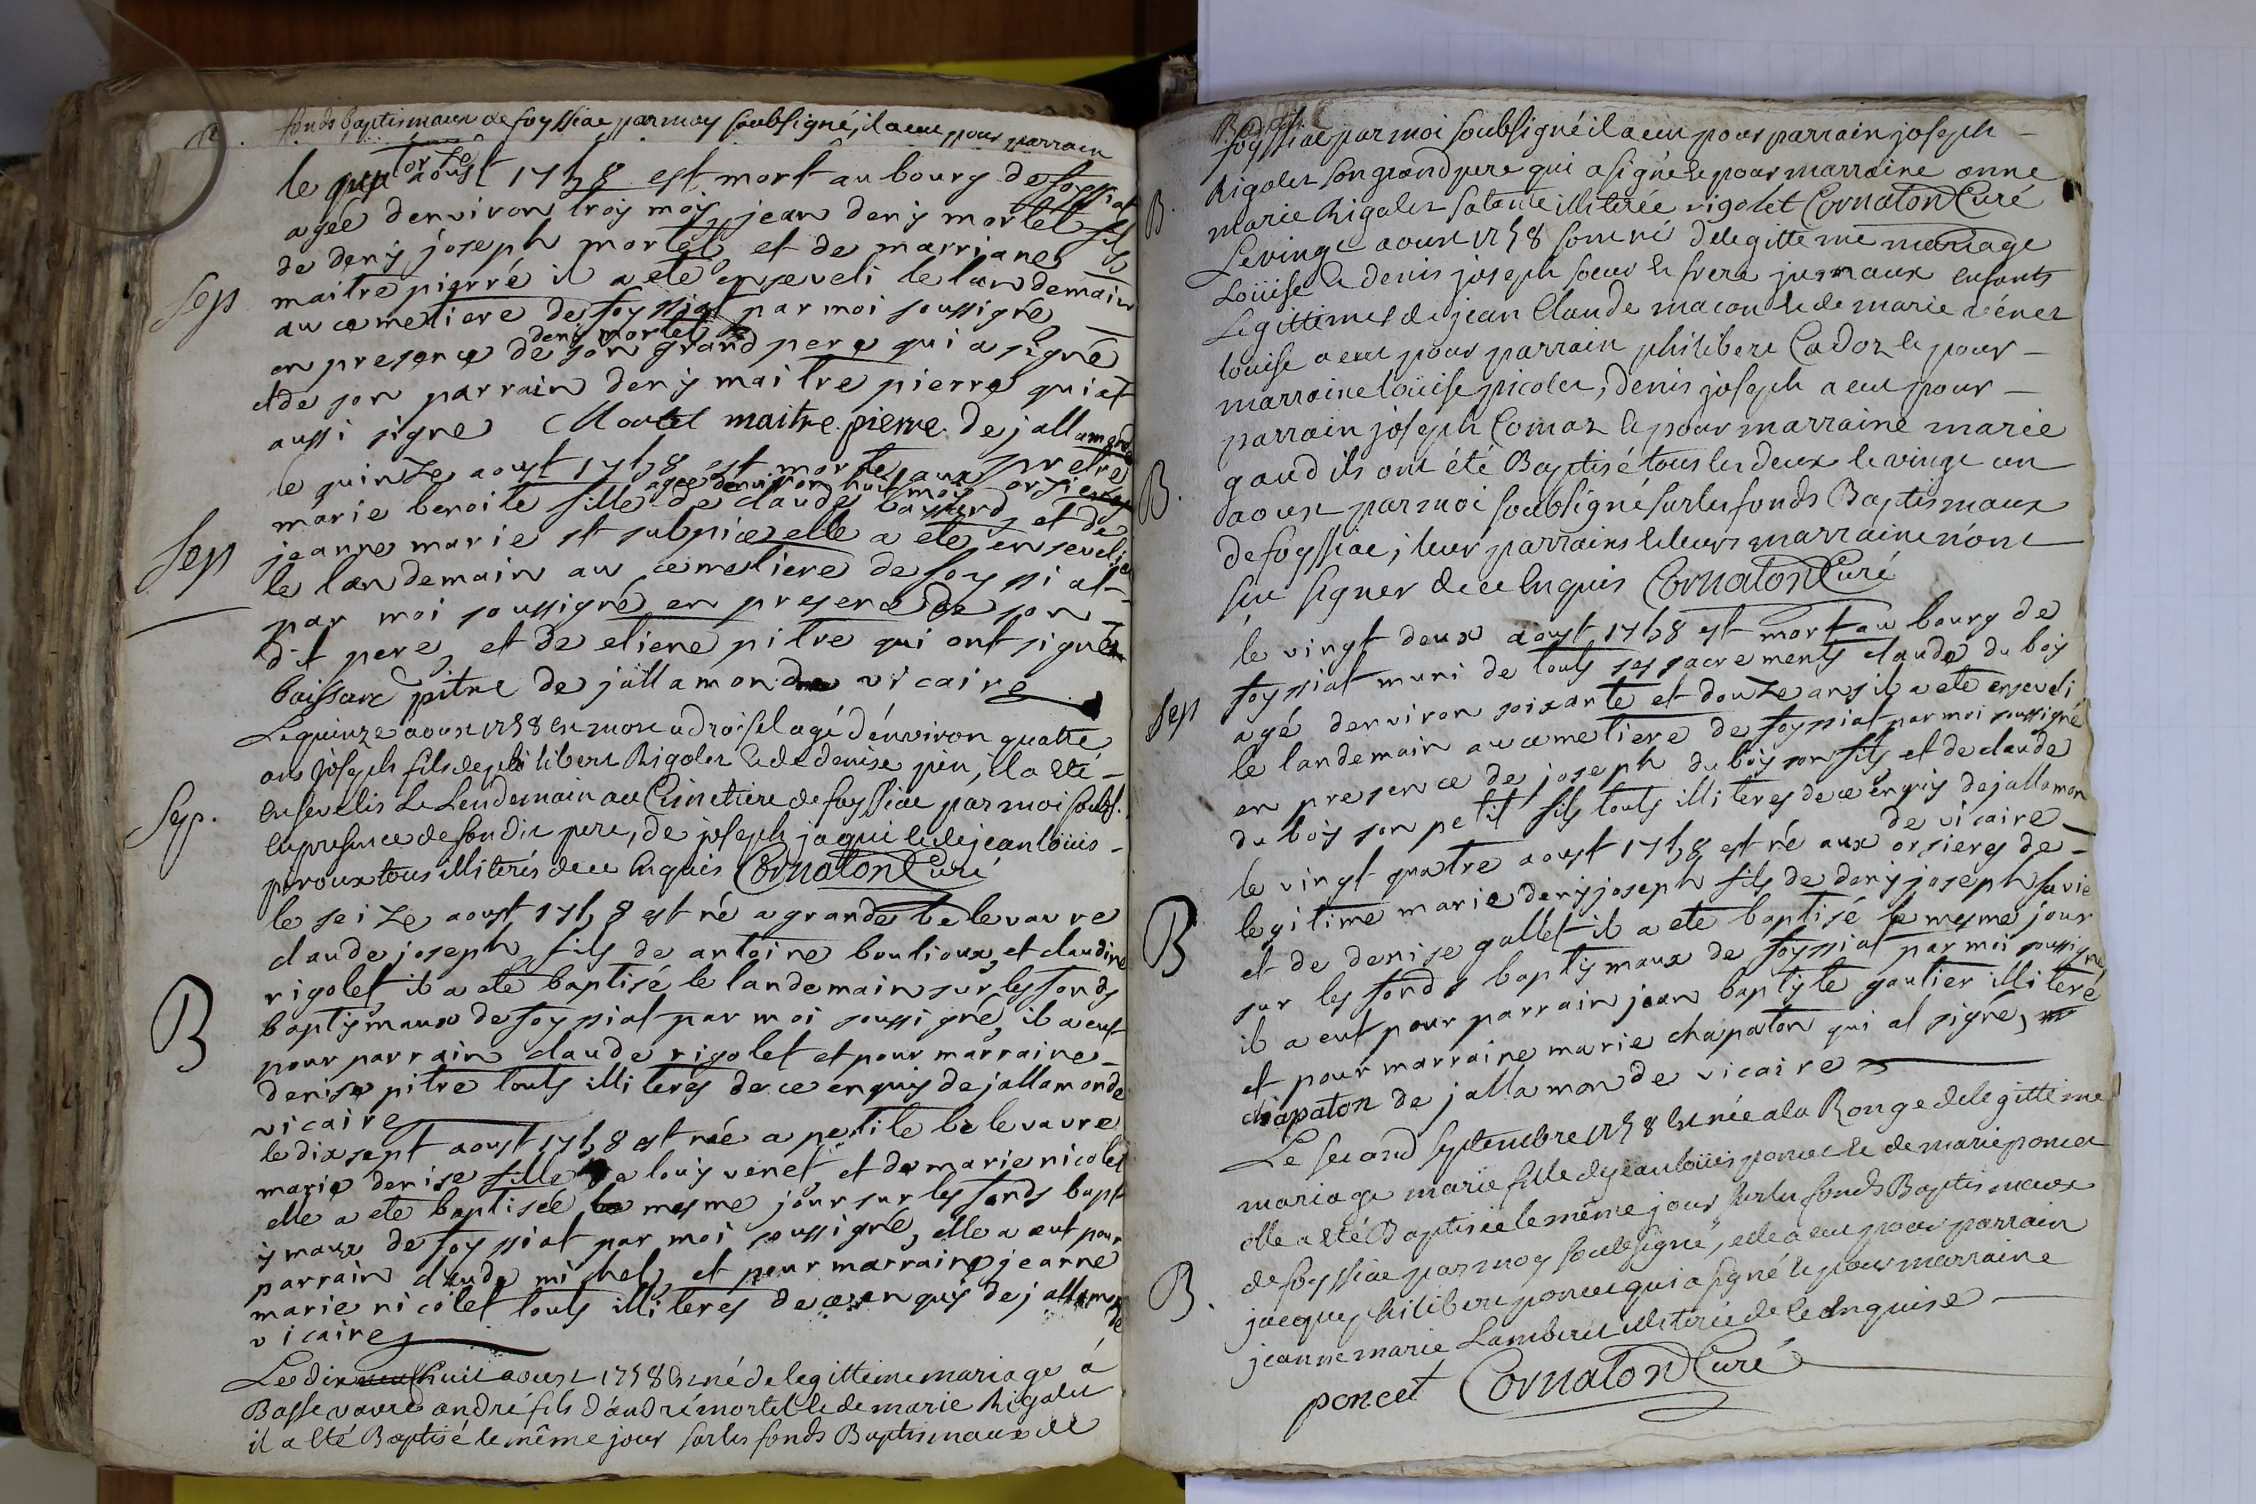 fonds baptismaux de foyssiac par moy soubsigné, il a eu pour parrain
torze
le aoust 1758 est mort au bourg de foyssiat
agée denviron troiy moiy jean deniy mortel fils
de deniy joseph mortel et de marriane
Sep
maitrepierré il a eté enseveli le landemain
au cemetiere de foyssiat par moi soussigné
deniy mortel
en presence de son grand pere qui a signé
et de son parrain deniy maitre pierre qui at
aussi signe Mortel maitre.pierre. de jallamonde
pretre
le quinze aoust 1758 est morte aux orsieres
agée denviron huit moiy
marie benoite fille de claude bayssard et de
Sep
jeanne marie st sulpice elle a eté ensevelie
le landemain au cemetiere de foyssiat
par moi soussigné en presence de son
dit pere, et de etiene pitre qui ont signé
baissard pitre de jallamonde vicaire
Le quinze aoust 1758 est mort a droisel agé d'environ quattre
ans joseph fils de philibert Rigolet et de denise piin, il a été
Sep.
ensevelis Le Lendemain au Cimetiere de foyssiac par moi soubs.
en presence de son dit pere, de joseph jaqui et de jean loüis
peroux tous illiterés de ce Enquis Cornaton Curé
le seize aoust 1758 est né a grande belevavre
claude joseph, fils de antoine boulioux, et claudine
rigolet, il a eté baptisé le landemain sur les fonds
B
baptiymaux de foyssiat par moi soussigné, il a eut
pour parrain claude rigolet et pour marraine
denise pitre touts illiteres de ce enquis de jallamonde
vicaire
le dix sept aoust 1758 est née a petite belevavre
marie denise fille de louiy venet et de marie nicolet
elle a eté baptisée le mesme jour sur les fonds bapt
iymaux de foyssiat par moi soussigné, elle a eut pour
parrain claude michel, et pour marraine jeanne
marie nicolet touts illiteres de ce enquis de jallamonde
vicaire
Le dix neuf huit aoust 1758 Est né de legittime mariage á
Basse vavre andré fils d'andré mortel et de marie Rigolet
il a été Baptisé le même jour sur les fonds Baptismaux de
foyssiac par moi soubsigné il a eu pour parrain joseph
Rigolet son grand pere qui a signé et pour marraine anne
marie Rigolet sa tante illiterée rigolet Cornaton Curé
B.
Le vingt aoust 1758 sont né de legittime mariage
Loüise et denis joseph soeur et frere jumaux enfants
Legittimes de jean Claude macon et de marie vénet
loüise a eu pour parrain philibert Cadoz et pour
marraine loüise picolet, denis joseph a eu pour
parrain joseph Comaz et pour marraine marie
gaud ils ont été Baptisé tous les deux le vingt un
B.
aoust par moi soubsigné sur les fonds Baptismaux
de foyssiac; leur parrains et leurs marraine n'ont
sçu signer de ce Enquis Cornaton Curé
le vingt deux aoust 1758 est mort au bourg de
foyssiat muni de touts ses sacrements claude du boiy
Sep
agé denviron soixante et douze ans il a eté enseveli
le landemain au cemetiere de foyssiat par moi soussigné
en presence de joseph du boiy son fils et de claude
du boiy son petit fils touts illiteres de ce enquis de jallamon
de vicaire
le vingt quatre aoust 1758 est né aux orsieres de
legitime marie deniy joseph fils de deniy joseph savie
B
et de denise gallet il a eté baptisé le mesme jour
sur les fonds baptiymaux de foyssiat par moi soussigné
il a eut pour parrain jean baptiste gautier illiteré
et pour marraine marie chapaton qui at signé,
chapaton de jallamonde vicaire
Le second septembre 1758 Est née a la Ronge de legittime
mariage marie fille de jean loüis poncet et de marie poncet
elle a été Baptisée le même jour sur les fonds Baptismaux
de foyssiac par moy soubsigné, elle a eu pour parrain
B.
jacque philibert poncet qui a signé et pour marraine
jeanne marie Lambert illiterée de ce Enquise
poncet Cornaton Curé